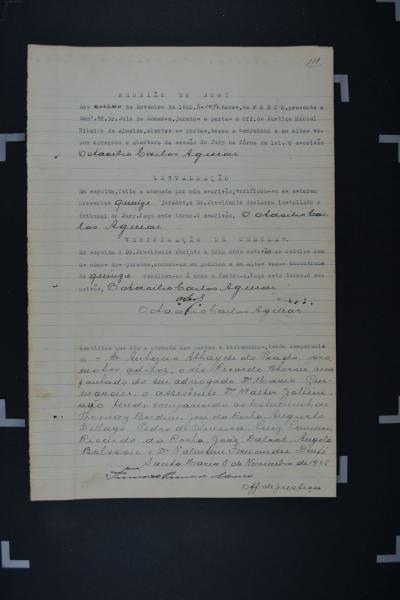 111
REUNIÃO DO JURY
Aos cinco de Novembro de 1925, ás horas, no FORUM, presente o
Exmº. Sr. Dr. Juiz de Comarca, jurados e partes e Off. de Justiça Manoel
Ribeiro de Almeida, abertas as portas, tocou a campainha e em altas vo-
zes apregoou a abertura da sessão do Jury na fórma da lei. O escrivão
Octacilio Carlos Aguiar
INSTALLAÇÃO
Em seguida, feita a chamada por mim escrivão, verificou-se se acharem
presentes quinze jurados, o Dr. Presidente declarou installado o
tribunal do Jury. Faço este termo. O escrivão, Octacilio Car-
los Aguiar
VERIFICAÇÃO DE CEDULAS.
Em seguida o Dr. Presidente abrindo a urna onde estavão as cedulas com
os nomes dos jurados, contou-as em publico e em altas vozes encontrando
quinze recolheu-as á urna e fechou-a. Faço este termo. O es-
crivão, Octacilio Carlos Aguiar
Octacilio Carlos Aguiar
Certifico que fiz a chamada das partes e testemunhas, tendo comparecido
o Dr. Antonio Athayde do Prado, pro
motor ad-hoc, o réo Ricardo acom
panhado do seu advogado Dr. Mario Gui-
marães, o assistente Dr. Walter Jobim,
não tendo comparecido as testemunhas
Thomaz José da Rocha, Augusto
Pedro de Oliveira, Luiz
Ricardo da Rocha, João Angelo
Bolsson e Dr. Valentim Fernandes
Santa Maria 5 de Novembro de 1925
Off. de justiça